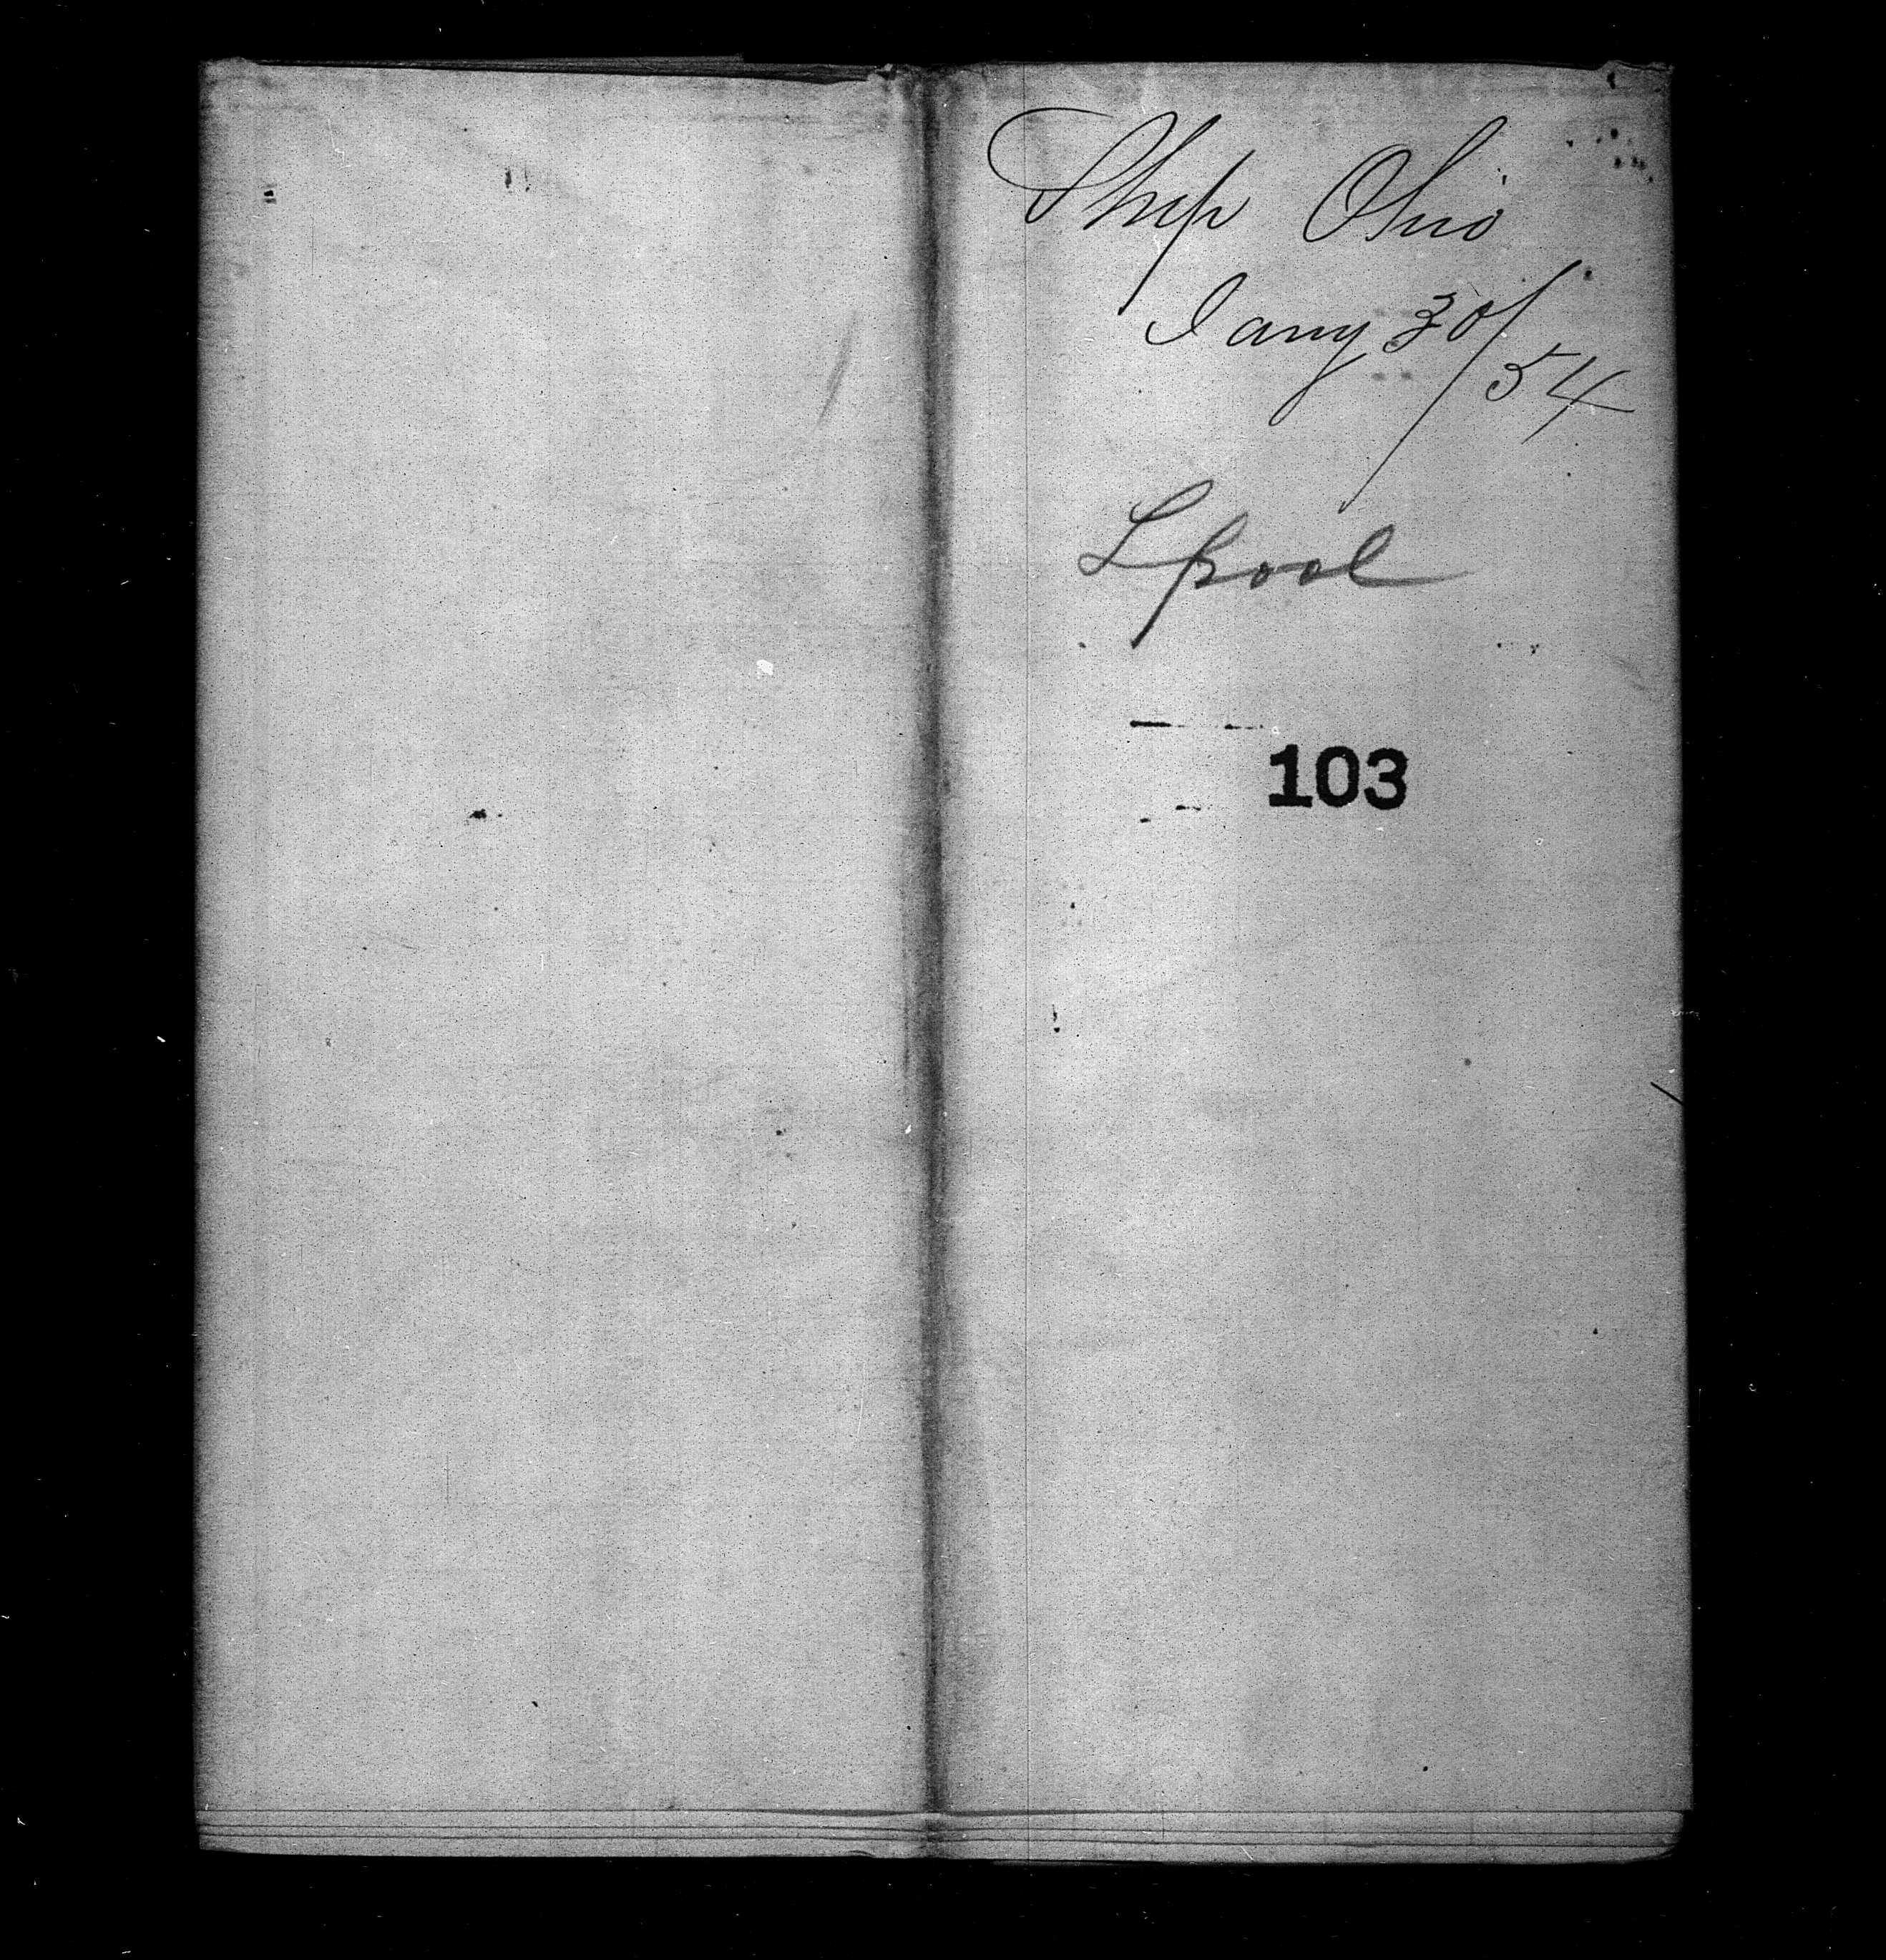 Ship Ohio
Jany 30/54
Lpool
103